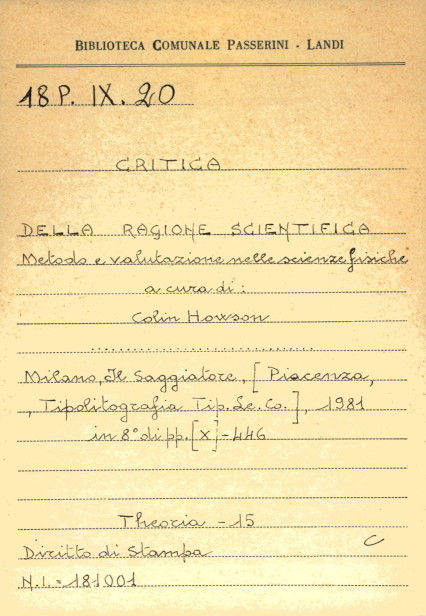 BIBLIOTECA COMUNALE PASSERINI - LANDI
18 P. IX. 20
CRITICA
DELLA RAGIONE SCIENTIFICA
Metodo e valutazione nelle scienze fisiche
a cura di:
Colin Howson
..............................
Milano, Il Saggiatore, [Piacenza,
, Tipolitografia Tip. Le. Co.], 1981
in 8° di pp. [X]-446
Theoria - 15
Diritto di Stampa
C
N.I. = 181001